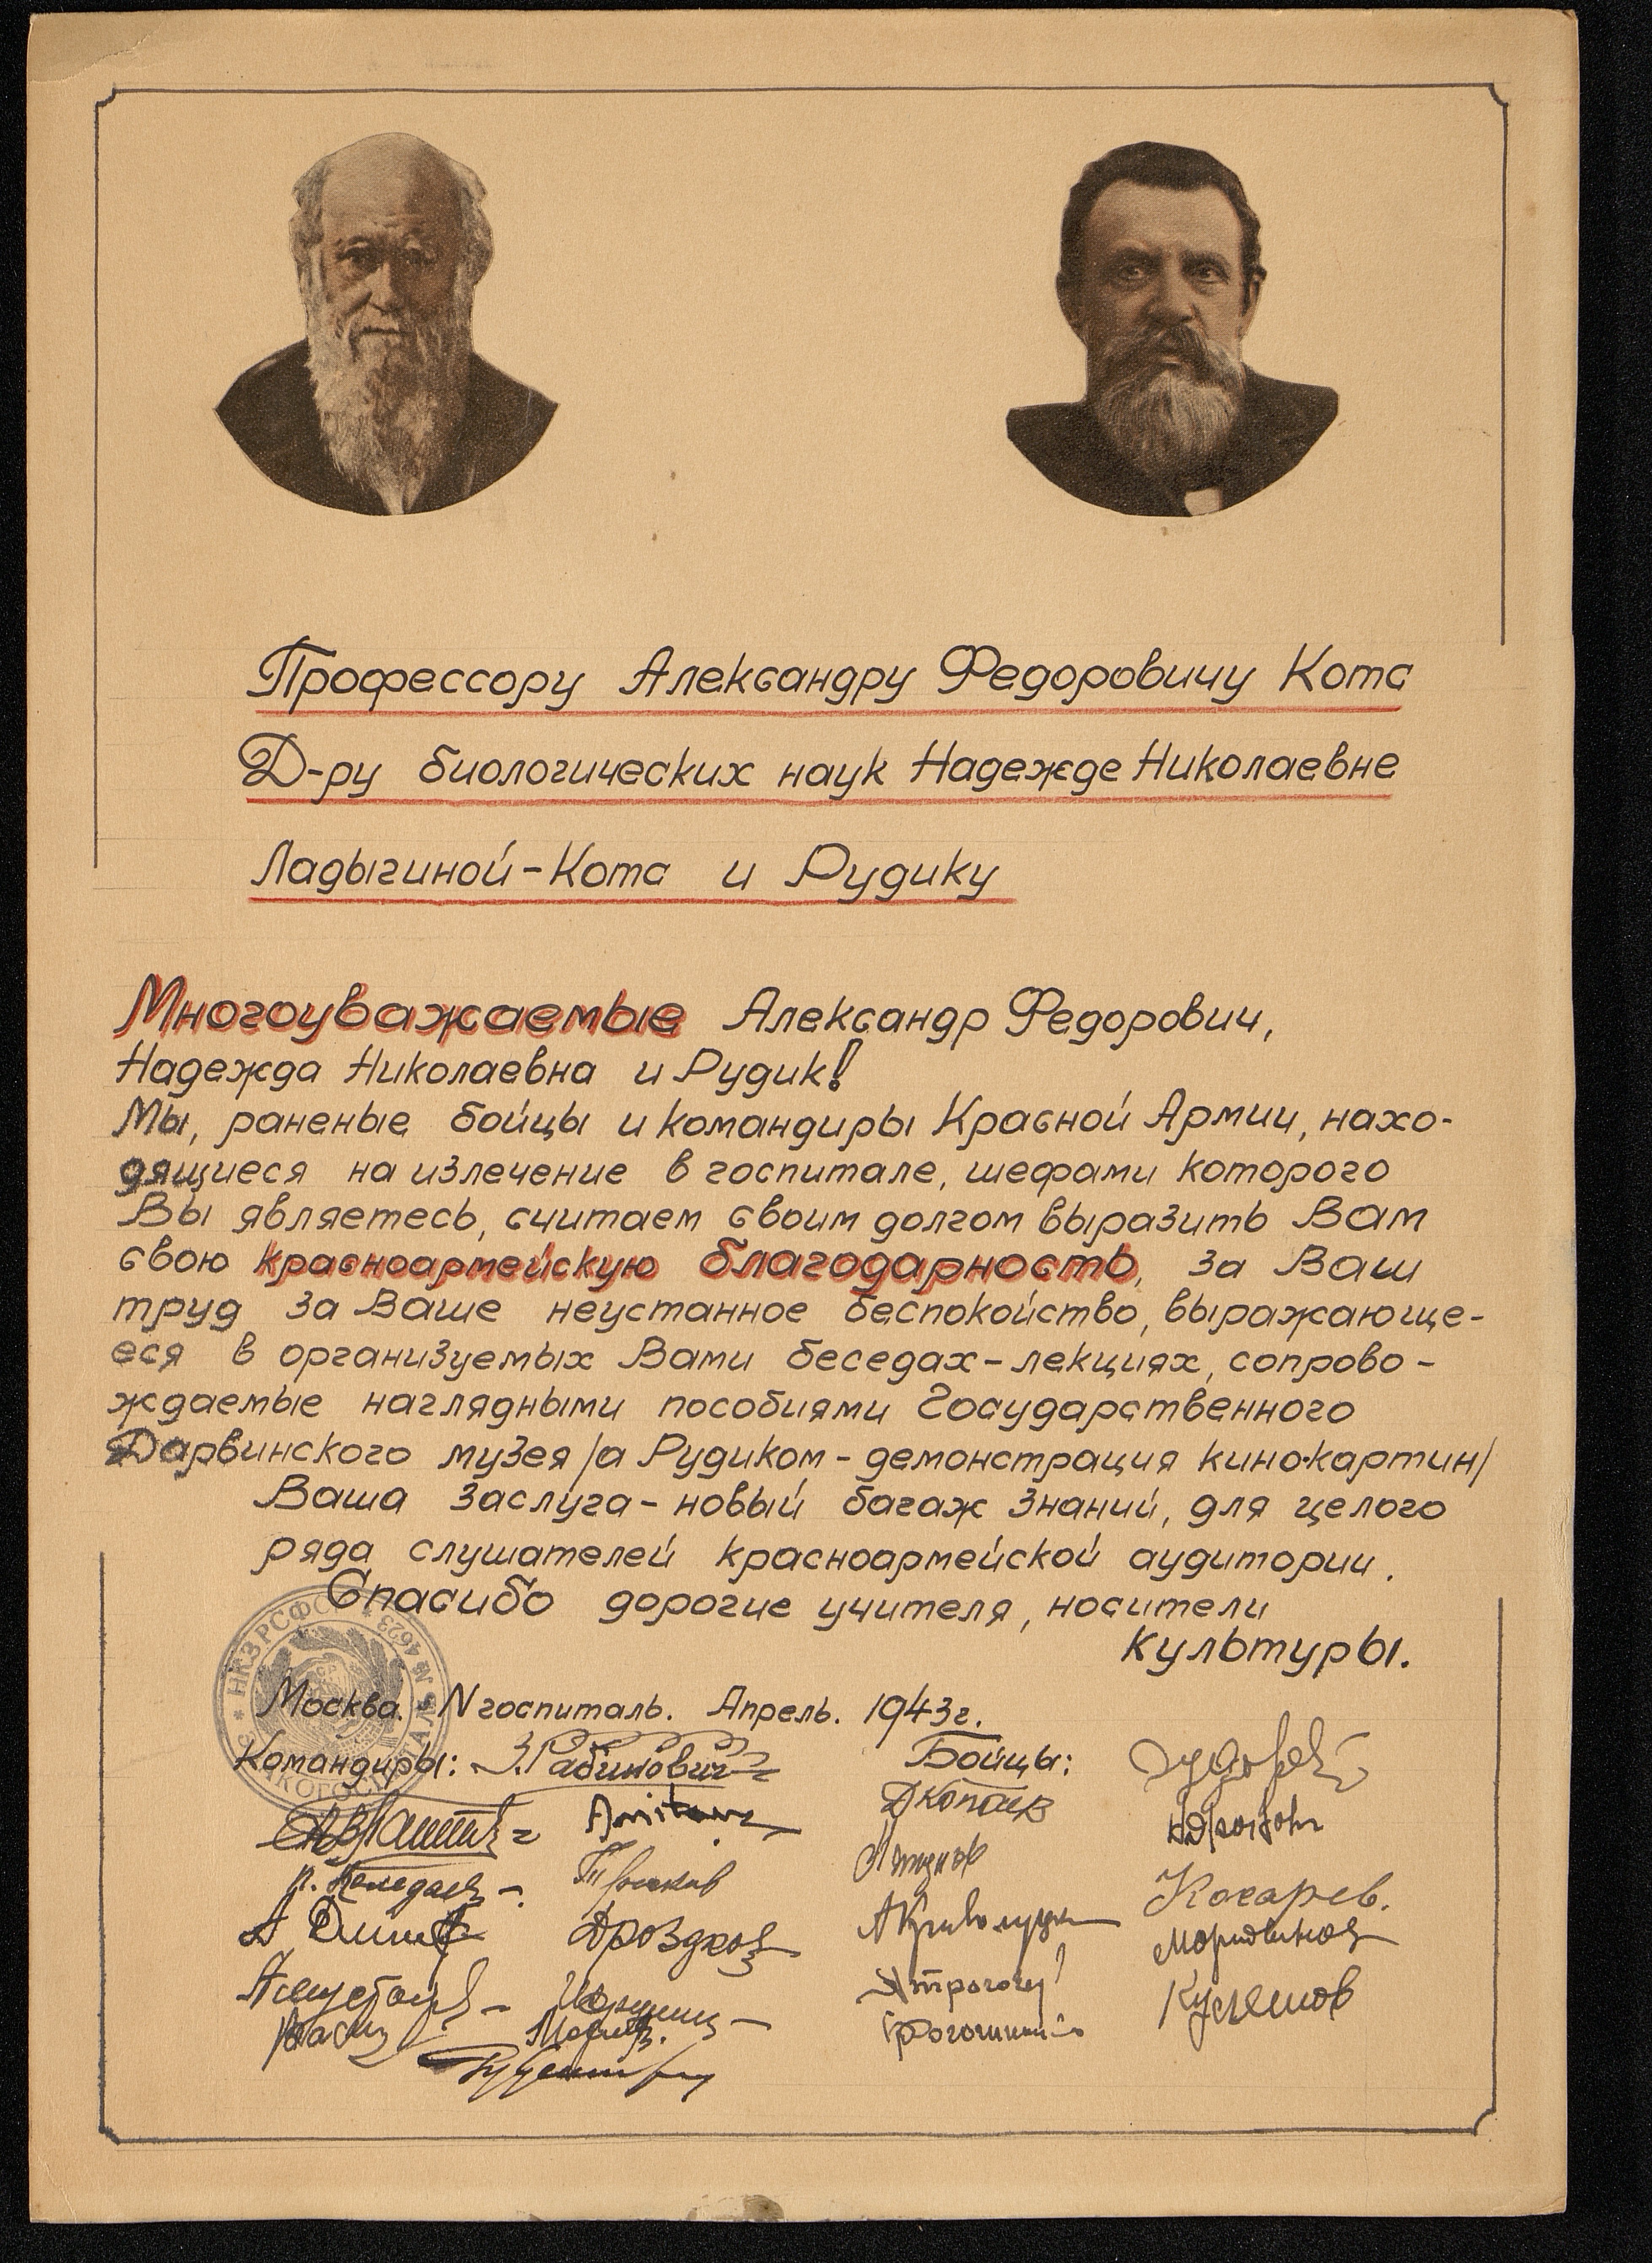 Профессору Александру Федоровичу Котс
Д-ру биологических наук Надежде Николаевне
Ладыгиной-Котс и Рудику
Многоуважаемые Александр Федорович,
Надежда Николаевна и Рудик!
Мы, раненые бойцы и командиры Красной Армии, нахо-
дящиеся на излечение в госпитале, шефами которого
Вы являетесь, считаем своим долгом выразить Вам
свою красноармейскую благодарность, за Ваш
труд за Ваше неустанное беспокойство, выражающе-
еся в организуемых Вами беседах-лекциях, сопрово-
ждаемые наглядными пособиями Государственного
Дарвинского музея /а Рудиком - демонстрация кино-картин/
Ваша заслуга - новый багаж знаний, для целого
ряда слушателей красноармейской аудитории.
Спасибо дорогие учителя, носители
культуры.
НКЗ РСФСР № 4623
Москва. N госпиталь. Апрель. 1943г.
Командиры: З.Рабинович Бойцы:
Дроздков
Косарев.